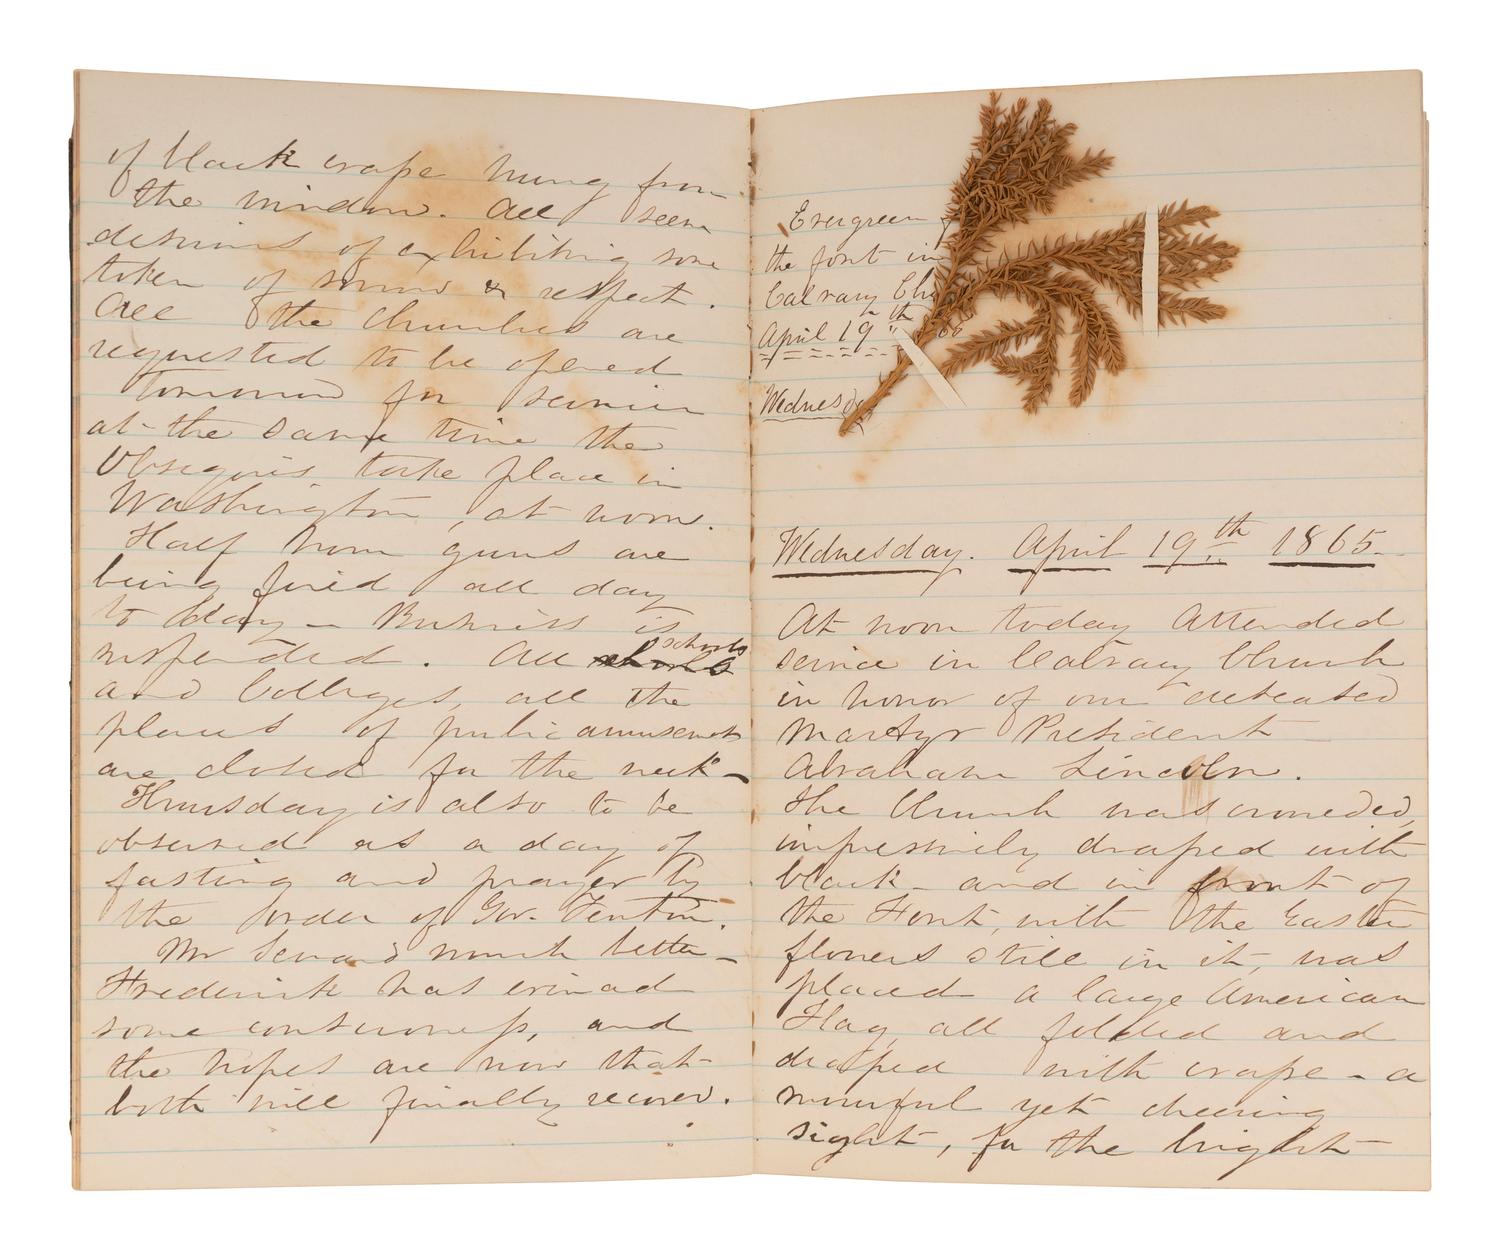 of black crape hung from
the window. All seem
desirous of exhibiting some
token of sorrow & respect.
All the Churches are
requested to be opened
tomorrow for service
at the same time the
Obsequies take place in
Washington, at noon.
Half hour guns are
being fired all day
to day – Business is
suspended. All schools
and Colleges, all the
places of public amusement
are closed for the week –
Thursday is also to be
observed as a day of
fasting and prayer by
the order of Gov. Fenton.
Mr Seward much better –
Frederick has evinced
some consciousness, and
the hopes are now that
both will finally recover.
Evergreen
the font in
Calvary Chu
April 19th
Wednesda
Wednesday. April 19th 1865.
At noon today attended
service in Calvary Church
in honor of our deceased
Martyr President –
Abraham Lincoln.
The Church was crowded,
impressively draped with
black – and in front of
the Font, with the Easter
flowers still in it, was
placed a large American
Flag, all folded and
draped with crape – a
mournful yet cheering
sight, for the bright